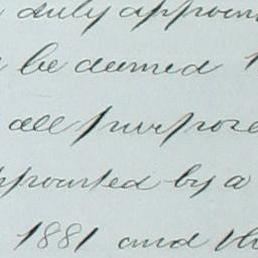 duly appoin
be deemed
all purpose
ppointed by a
1881 and th